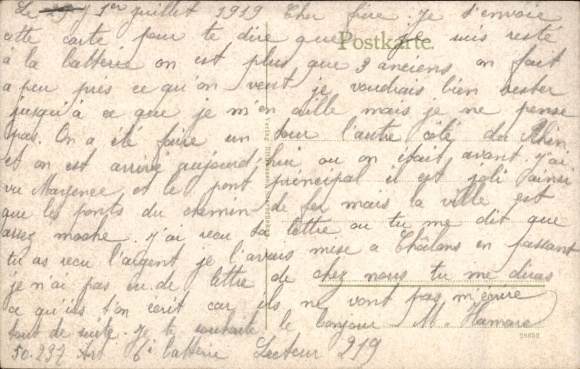 Le 1er juillet 1919 Cher frère. Je t'envoie
cette carte pour te dire que je suis resté
Postkarte.
à la batterie on est plus que 3 anciens, on fait
a peu près ce qu'on veut je voudrais bien rester
jusqu'à ce que je m'en aille mais je ne pense
pas. On a été faire un tour l'autre côté du Rhin
et on est arrivé aujourd'hui ou on était avant. J'ai
vu Mayence et le pont principal il est joli ainsi
que les ponts du chemin de fer mais la ville est
assez moche. J'ai recu ta lettre ou tu me dit que
tu as recu l'argent je l'avais mise a Châlons en passant
je n'ai pas eu de lettre de chez nous tu me diras
ce qu'ils t'on écrit car ils ne vont pas m'écrire
tout de suite. Je te souhaite le bonjour M. Hamare
50.237 Art 6e batterie Secteur 219